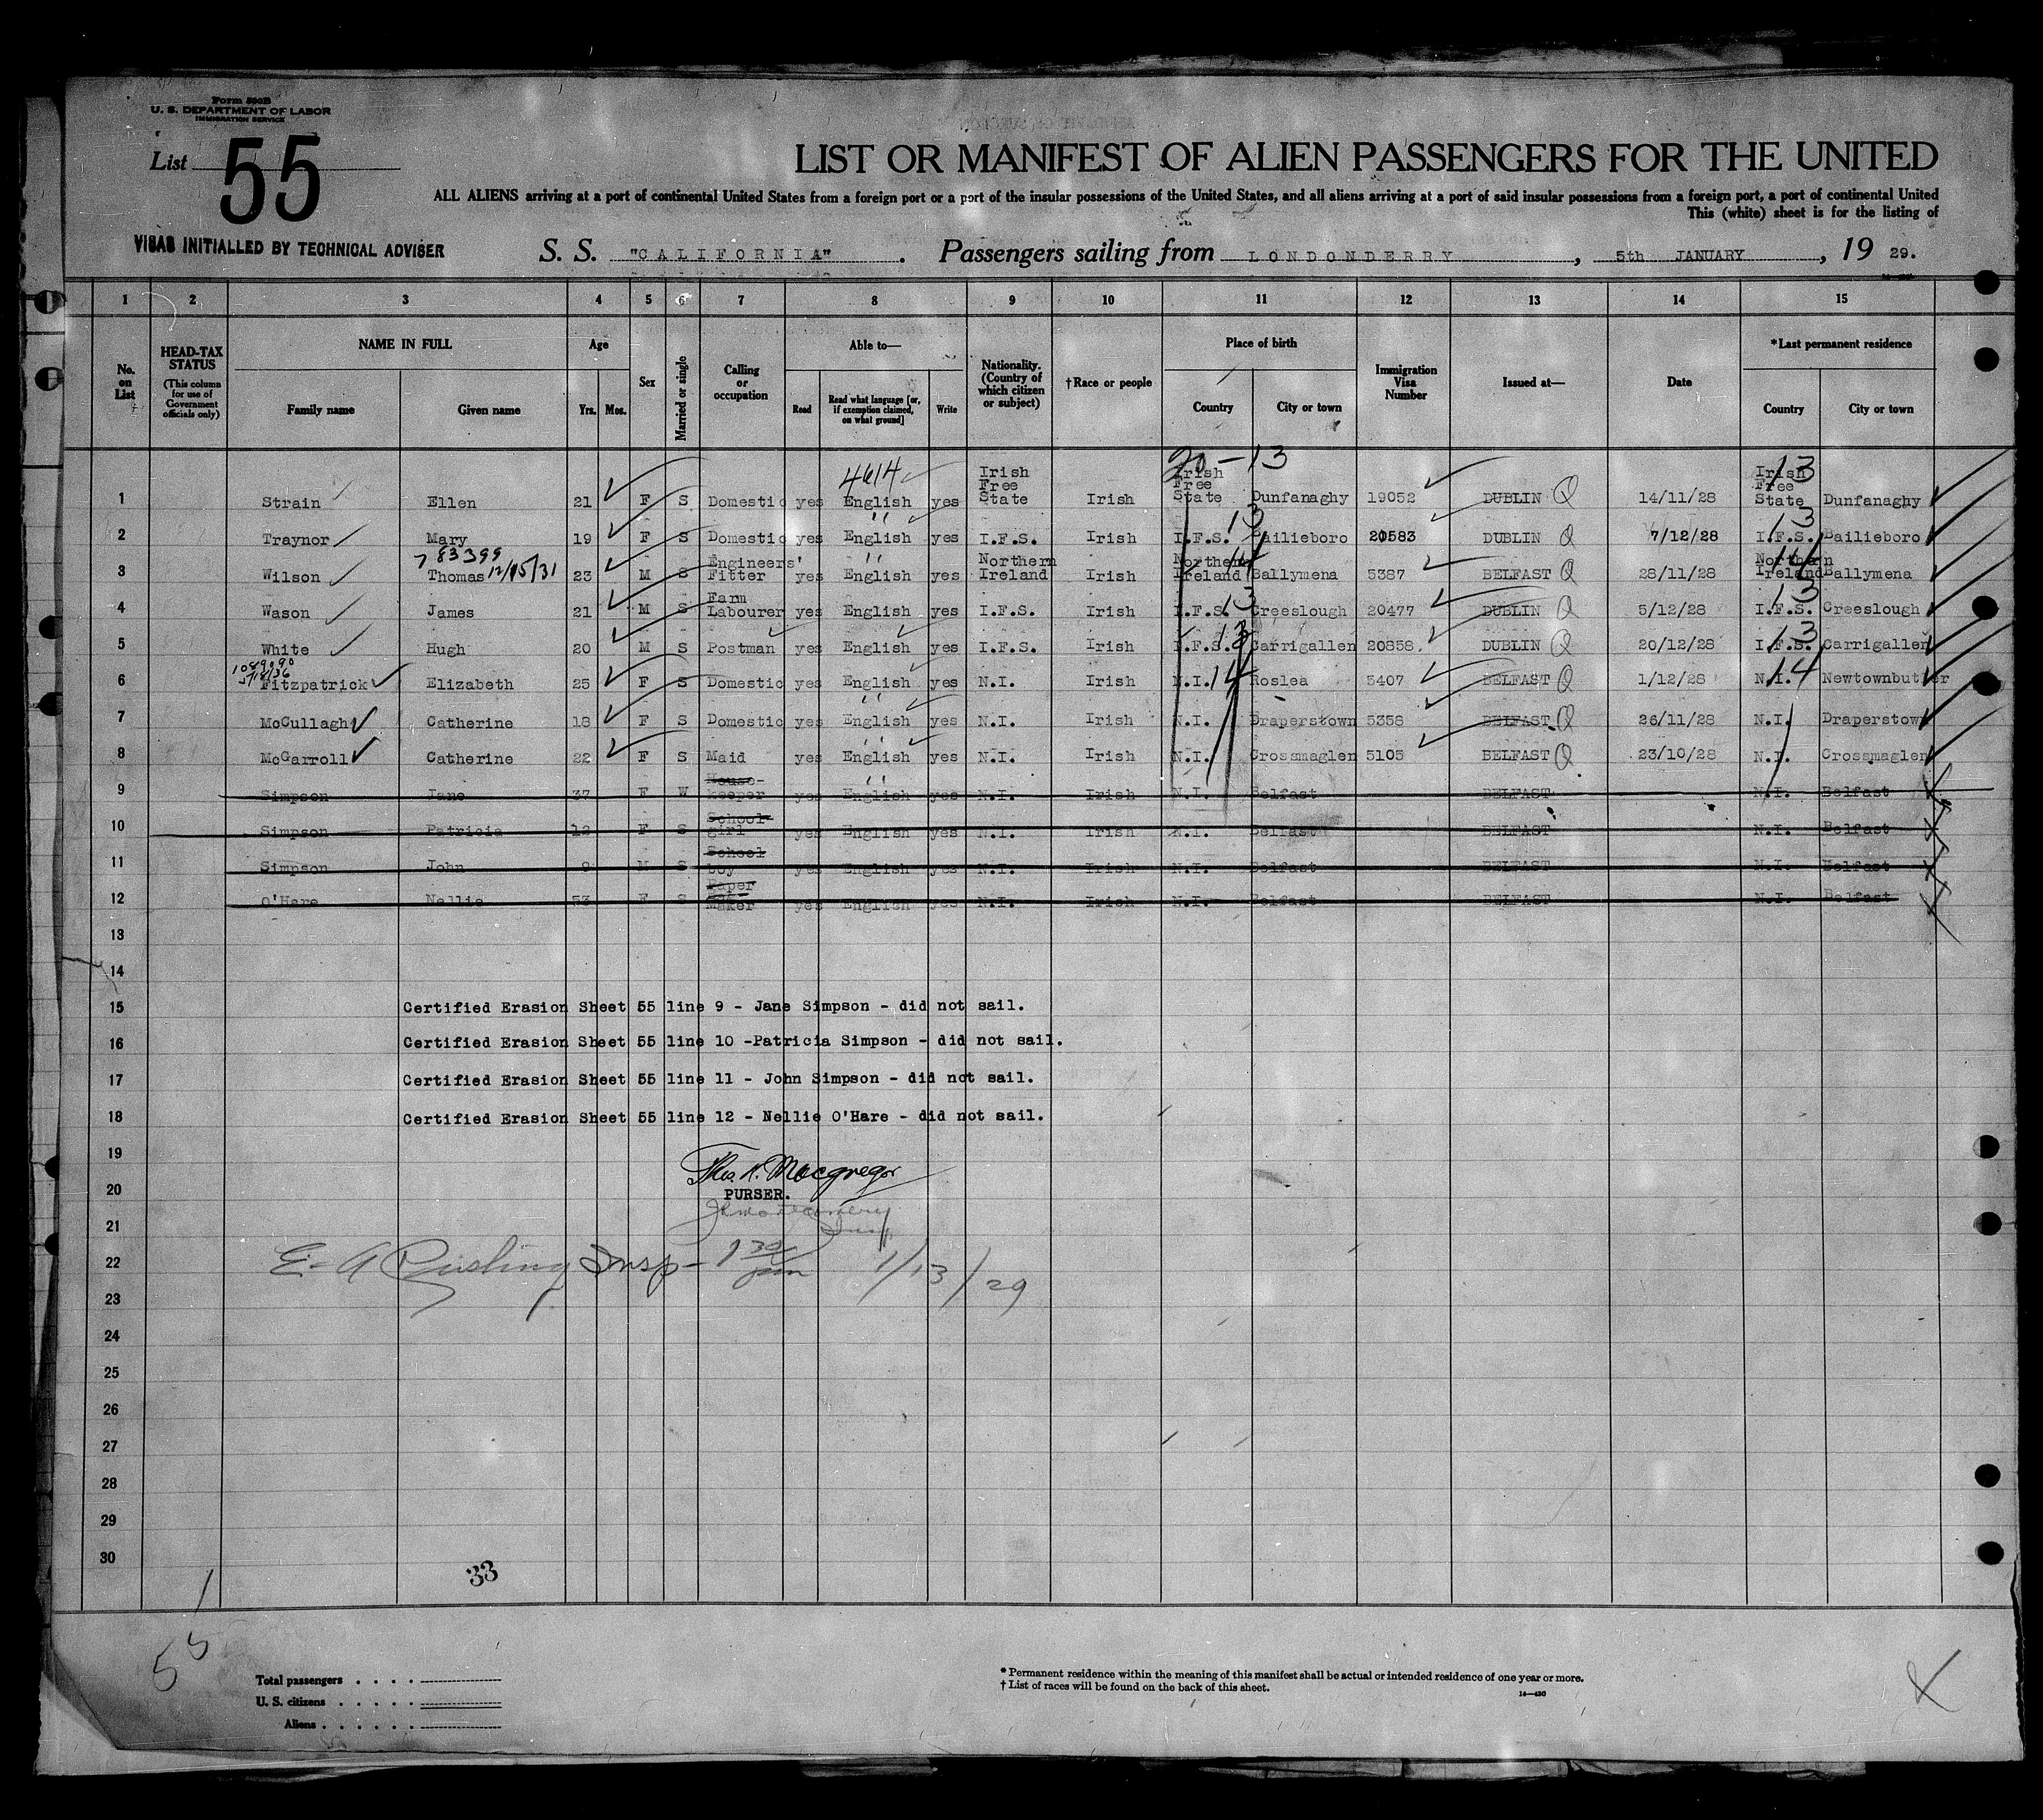 Form 500B
U. S. DEPARTMENT OF LABOR
IMMIGRATION SERVICE
List 55
LIST OR MANIFEST OF ALIEN PASSENGERS FOR THE UNITED
ALL ALIENS arriving at a port of continental United States from a foreign port or a port of the insular possessions of the United States, and all aliens arriving at a port of said insular possessions from a foreign port, a port of continental United
This (white) sheet is for the listing of
VISAS INITIALLED BY TECHNICAL ADVISER
S. S. "CALIFORNIA". Passengers sailing from LONDONDERRY, 5th JANUARY, 19 29.
1 2 3 4 5 6 7 8 9 10 11 12 13 14 15
No. on List
HEAD-TAX STATUS
(This column for use of Government officials only)
NAME IN FULL
Family name Given name
Age
Yrs. Mos.
Sex
Married or single
Calling or occupation
Able to—
Read Read what language [or, if exemption claimed, on what ground] Write
Nationality. (Country of which citizen or subject)
†Race or people
Place of birth
Country City or town
Immigration Visa Number
Issued at—
Date
*Last permanent residence
Country City or town
4614 20-13 13
1 Strain Ellen 21 F S Domestic yes English yes Irish Free State Irish Irish Free State Dunfanaghy 19052 DUBLIN Q 14/11/28 Irish Free State Dunfanaghy
13 13
2 Traynor Mary 19 F S Domestic yes English yes I.F.S. Irish I.F.S. Bailieboro 20583 DUBLIN Q 7/12/28 I.F.S. Bailieboro
7 83399 12/15/31 14 14
3 Wilson Thomas 23 M S Engineers' Fitter yes English yes Northern Ireland Irish Northern Ireland Ballymena 5387 BELFAST Q 28/11/28 Northern Ireland Ballymena
13 13
4 Wason James 21 M S Farm Labourer yes English yes I.F.S. Irish I.F.S. Creeslough 20477 DUBLIN Q 5/12/28 I.F.S. Creeslough
13 13
5 White Hugh 20 M S Postman yes English yes I.F.S. Irish I.F.S. Carrigallen 20858 DUBLIN Q 20/12/28 I.F.S. Carrigallen
1089090 14 14
6 Fitzpatrick Elizabeth 25 F S Domestic yes English yes N.I. Irish N.I. Roslea 5407 BELFAST Q 1/12/28 N.I. Newtownbutler
7 McCullagh Catherine 18 F S Domestic yes English yes N.I. Irish N.I. Draperstown 5358 BELFAST Q 26/11/28 N.I. Draperstown
8 McGarroll Catherine 22 F S Maid yes English yes N.I. Irish N.I. Crossmaglen 5105 BELFAST Q 23/10/28 N.I. Crossmaglen
9 Simpson Jane 37 F W House-keeper yes English yes N.I. Irish N.I. Belfast BELFAST N.I. Belfast
10 Simpson Patricia 12 F S School girl yes English yes N.I. Irish N.I. Belfast BELFAST N.I. Belfast
11 Simpson John 9 M S School boy yes English yes N.I. Irish N.I. Belfast BELFAST N.I. Belfast
12 O'Hare Nellie 53 F S Paper Maker yes English yes N.I. Irish N.I. Belfast BELFAST N.I. Belfast
13
14
15 Certified Erasion Sheet 55 line 9 - Jane Simpson - did not sail.
16 Certified Erasion Sheet 55 line 10 -Patricia Simpson - did not sail.
17 Certified Erasion Sheet 55 line 11 - John Simpson - did not sail.
18 Certified Erasion Sheet 55 line 12 - Nellie O'Hare - did not sail.
19
Thos. H. Macgregor
20 PURSER.
Montgomery
21 Insp
22 E. A. Insp- 1 30 pm 1/13/29
23
24
25
26
27
28
29
30
33
55
Total passengers
U. S. citizens
Aliens
* Permanent residence within the meaning of this manifest shall be actual or intended residence of one year or more.
† List of races will be found on the back of this sheet.
14—430